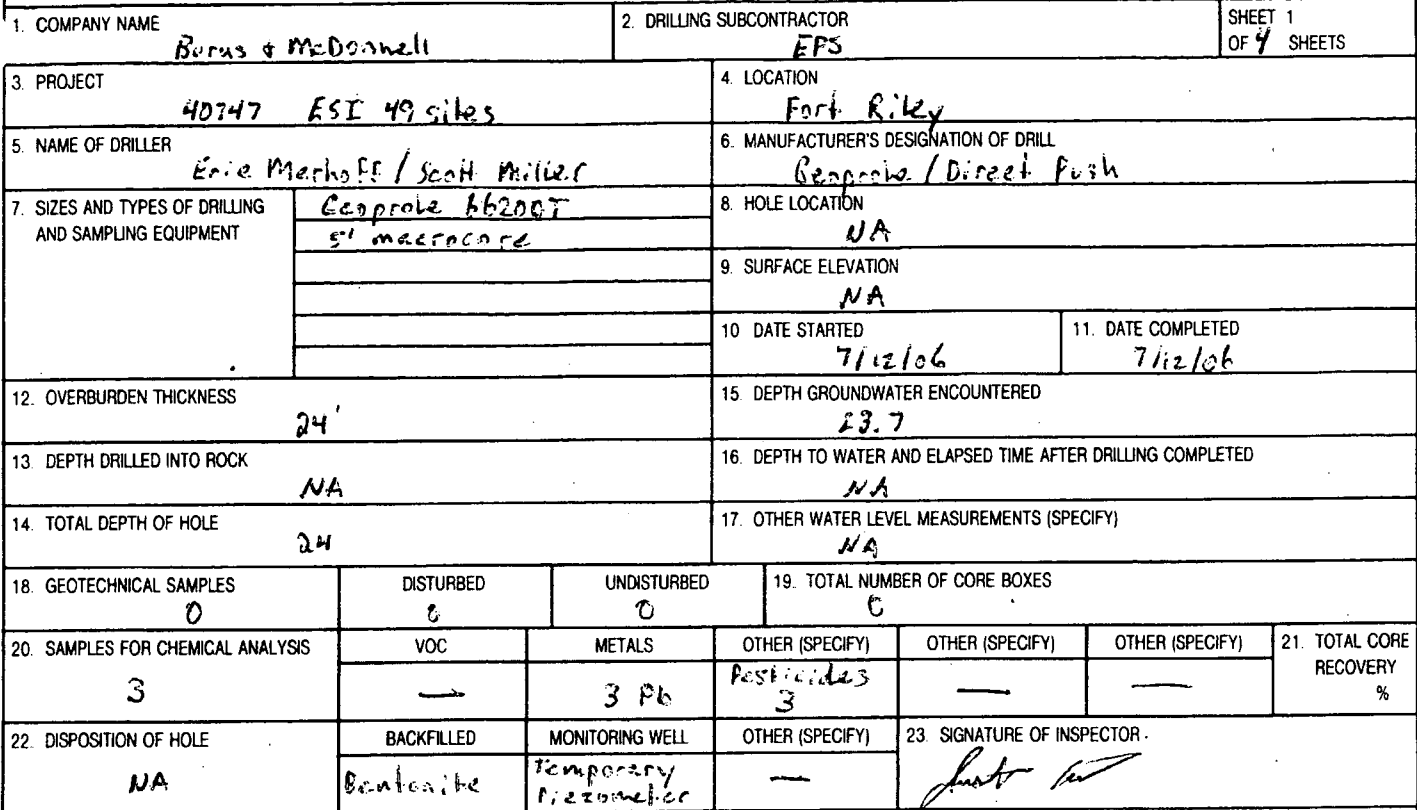 1. COMPANY NAME
Burns & McDonnell
2. DRILLING SUBCONTRACTOR
EPS
SHEET 1
OF 4 SHEETS
3. PROJECT
40747 ESI 49 sites
4. LOCATION
Fort Riley
5. NAME OF DRILLER
Eric Merhoff / Scott Miller
6. MANUFACTURER'S DESIGNATION OF DRILL
Geoprobe / Direct Push
7. SIZES AND TYPES OF DRILLING
AND SAMPLING EQUIPMENT
Geoprobe 6620DT
5' macrocore
8. HOLE LOCATION
NA
9. SURFACE ELEVATION
NA
10 DATE STARTED
7/12/06
11. DATE COMPLETED
7/12/06
12. OVERBURDEN THICKNESS
24'
15. DEPTH GROUNDWATER ENCOUNTERED
23.7
13. DEPTH DRILLED INTO ROCK
NA
16. DEPTH TO WATER AND ELAPSED TIME AFTER DRILLING COMPLETED
NA
14. TOTAL DEPTH OF HOLE
24
17. OTHER WATER LEVEL MEASUREMENTS (SPECIFY)
NA
18. GEOTECHNICAL SAMPLES
0
DISTURBED
0
UNDISTURBED
0
19. TOTAL NUMBER OF CORE BOXES
0
20. SAMPLES FOR CHEMICAL ANALYSIS
3
VOC
—
METALS
3 Pb
OTHER (SPECIFY)
Pesticides
3
OTHER (SPECIFY)
—
OTHER (SPECIFY)
—
21. TOTAL CORE
RECOVERY
%
22. DISPOSITION OF HOLE
NA
BACKFILLED
Bentonite
MONITORING WELL
Temporary
Piezometer
OTHER (SPECIFY)
—
23. SIGNATURE OF INSPECTOR